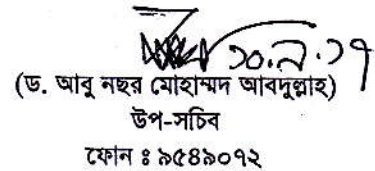 ১০.৯.১৭
(ড. আবু নছর মোহাম্মদ আবদুল্লাহ)
উপ-সচিব
ফোন ঃ ৯৫৪৯০৭২